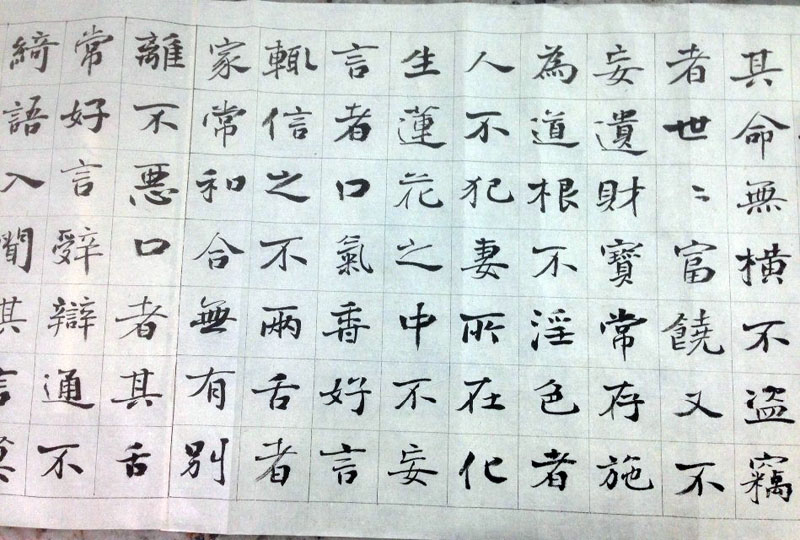 其命無橫不盗竊
者世〻富饒又不
妄遺財寶常存施
為道根不淫色者
人不犯妻所在化
生蓮花之中不妄
言者口氣香好言
輒信之不兩舌者
家常和合無有別
離不悪口者其舌
常好言辭辯通不
綺語人聞其言莫